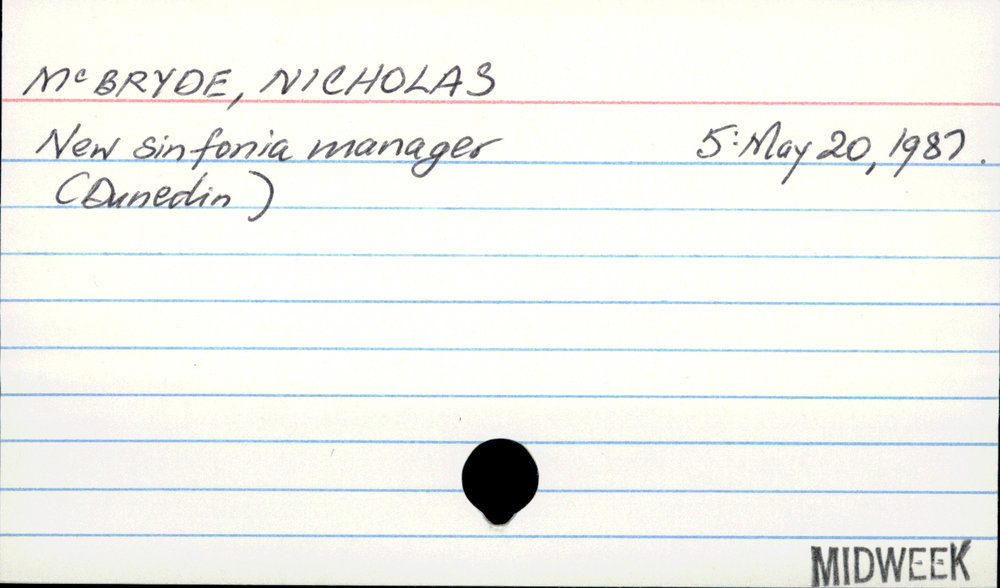 McBRYDE, NICHOLAS
New sinfonia manager 5: May 20, 1987.
(Dunedin)
MIDWEEK